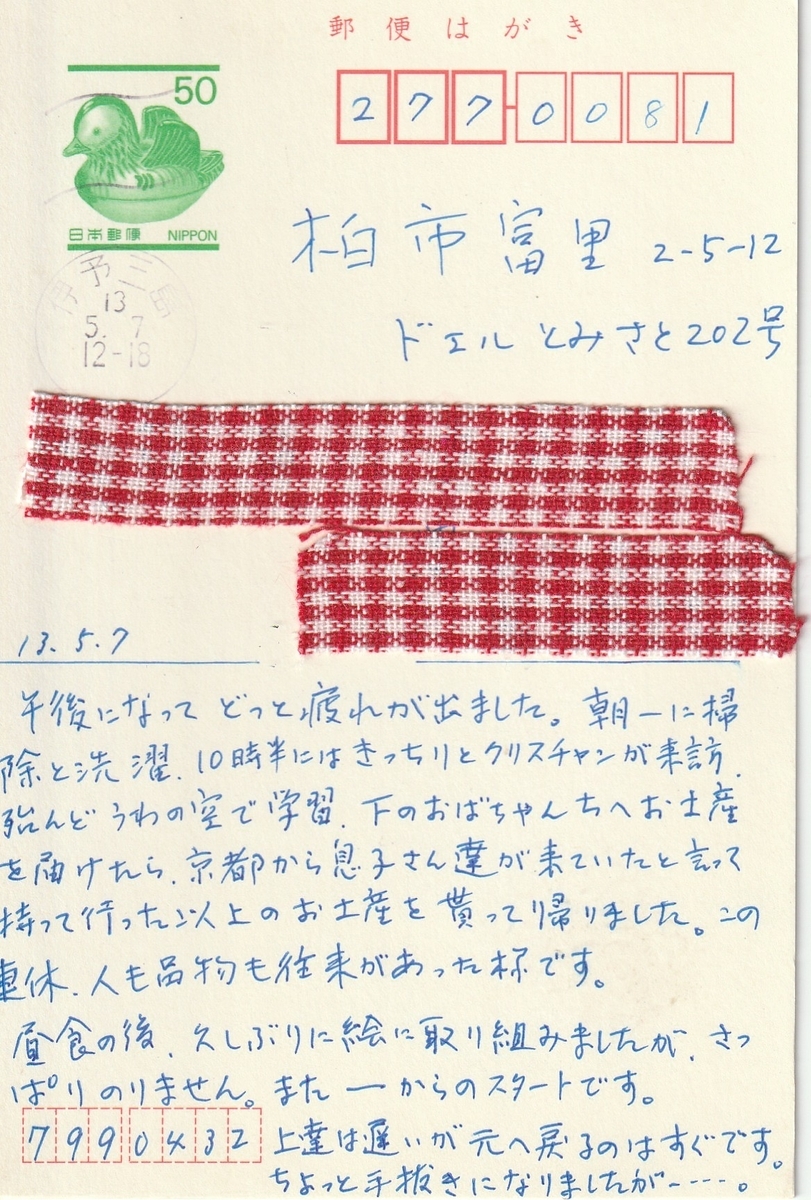 郵便はがき
50
日本郵便 NIPPON
277-0081
柏市富里 2-5-12
ドエルとみさと202号
伊予三島
13
5.7
12-18
13.5.7
午後になってどっと疲れが出ました。朝一に掃
除と洗濯、10時半にはきっちりとクリスチャンが来訪、
殆んどうわの空で学習、下のおばちゃんちへお土産
を届けたら、京都から息子さん達が来ていたと言って
持って行った以上のお土産を貰って帰りました。この
連休、人も品物も往来があった様です。
昼食の後、久しぶりに絵に取り組みましたが、さっ
ぱりのりません。また一からのスタートです。
上達は遅いが元へ戻るのはすぐです。
ちょっと手抜きになりましたが-----。
7990432